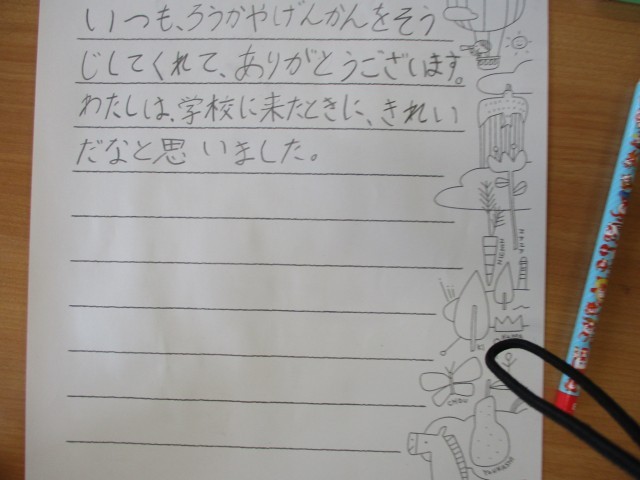 いつも、ろうかやげんかんをそう
じしてくれて、ありがとうございます。
わたしは、学校に来たときに、きれい
だなと思いました。
CHOU